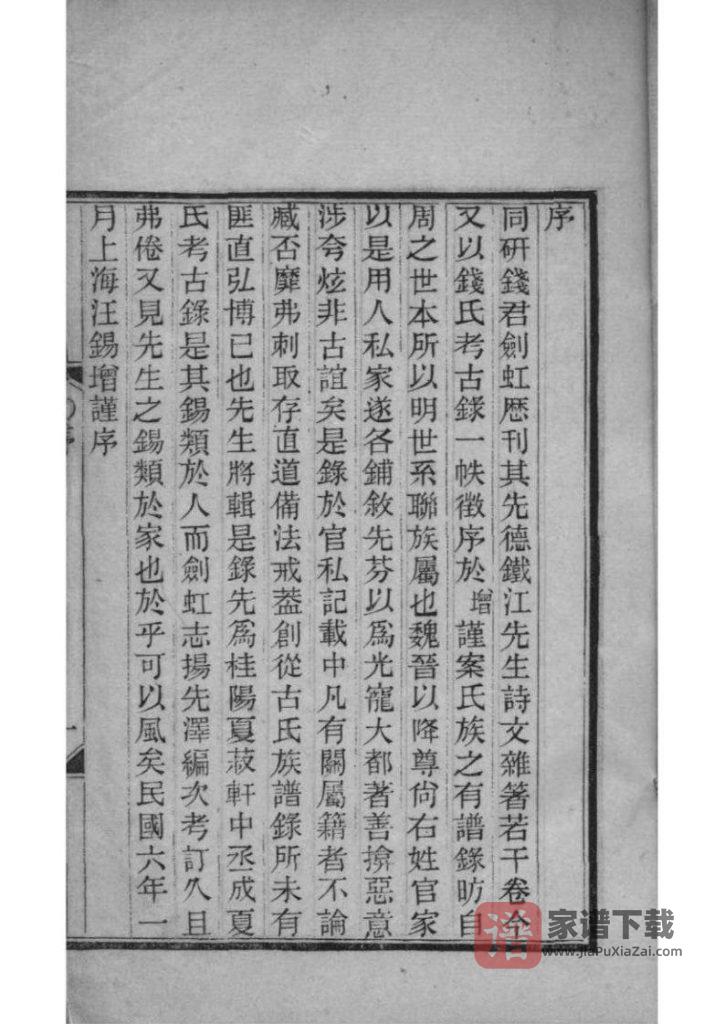 序
同研錢君劍虹歷刊其先德鐵江先生詩文雜著若干卷今
又以錢氏考古錄一帙徵序於增謹案氏族之有譜錄昉自
周之世本所以明世系聯族屬也魏晉以降尊尙右姓官家
以是用人私家遂各鋪敘先芬以爲光寵大都著善揜惡意
涉夸炫非古誼矣是錄於官私記載中凡有關屬籍者不論
臧否靡弗刺取存直道備法戒葢創從古氏族譜錄所未有
匪直弘博已也先生將輯是錄先爲桂陽夏菽軒中丞成夏
氏考古錄是其錫類於人而劍虹志揚先澤編次考訂久且
弗倦又見先生之錫類於家也於乎可以風矣民國六年一
月上海汪錫增謹序
序
一
譜
家谱下载
www.JiaPuXiaZai.com